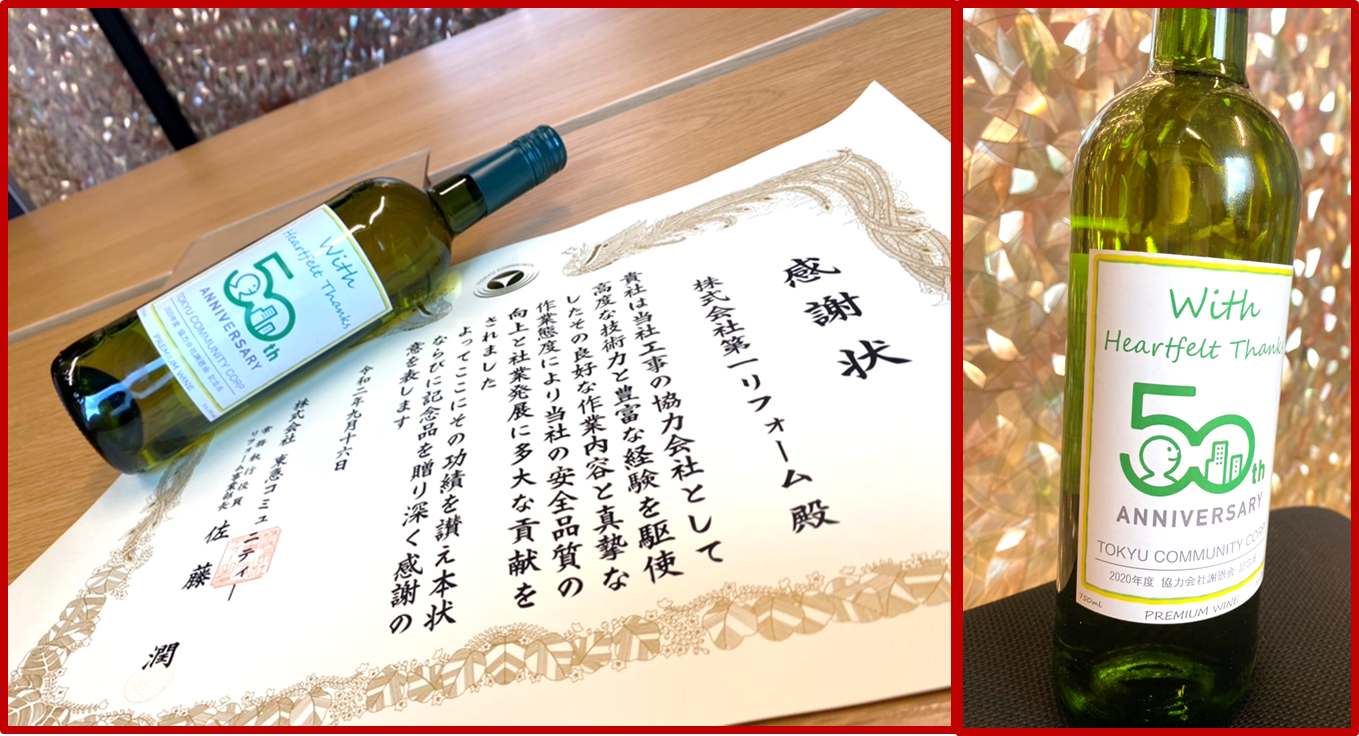 感謝状
株式会社第一リフォーム殿
貴社は当社工事の協力会社として
高度な技術力と豊富な経験を駆使
したその良好な作業内容と真摯な
作業態度により当社の安全品質の
向上と社業発展に多大な貢献を
されました
よってここにその功績を讃え本状
ならびに記念品を贈り深く感謝の
意を表します
令和二年九月十六日
株式会社 東急コミュニティー
常務執行役員
リフォーム事業部長
佐藤 潤
With
Heartfelt Thanks
50th
ANNIVERSARY
TOKYU COMMUNITY CORP
2020年度 協力会社謝恩会 記念品
PREMIUM WINE
With
Heartfelt Thank
50th
ANNIVERSARY
TOKYU COMMUNITY COR
2020年度 協力会社謝恩会 記念品
750ml
PREMIUM WINE